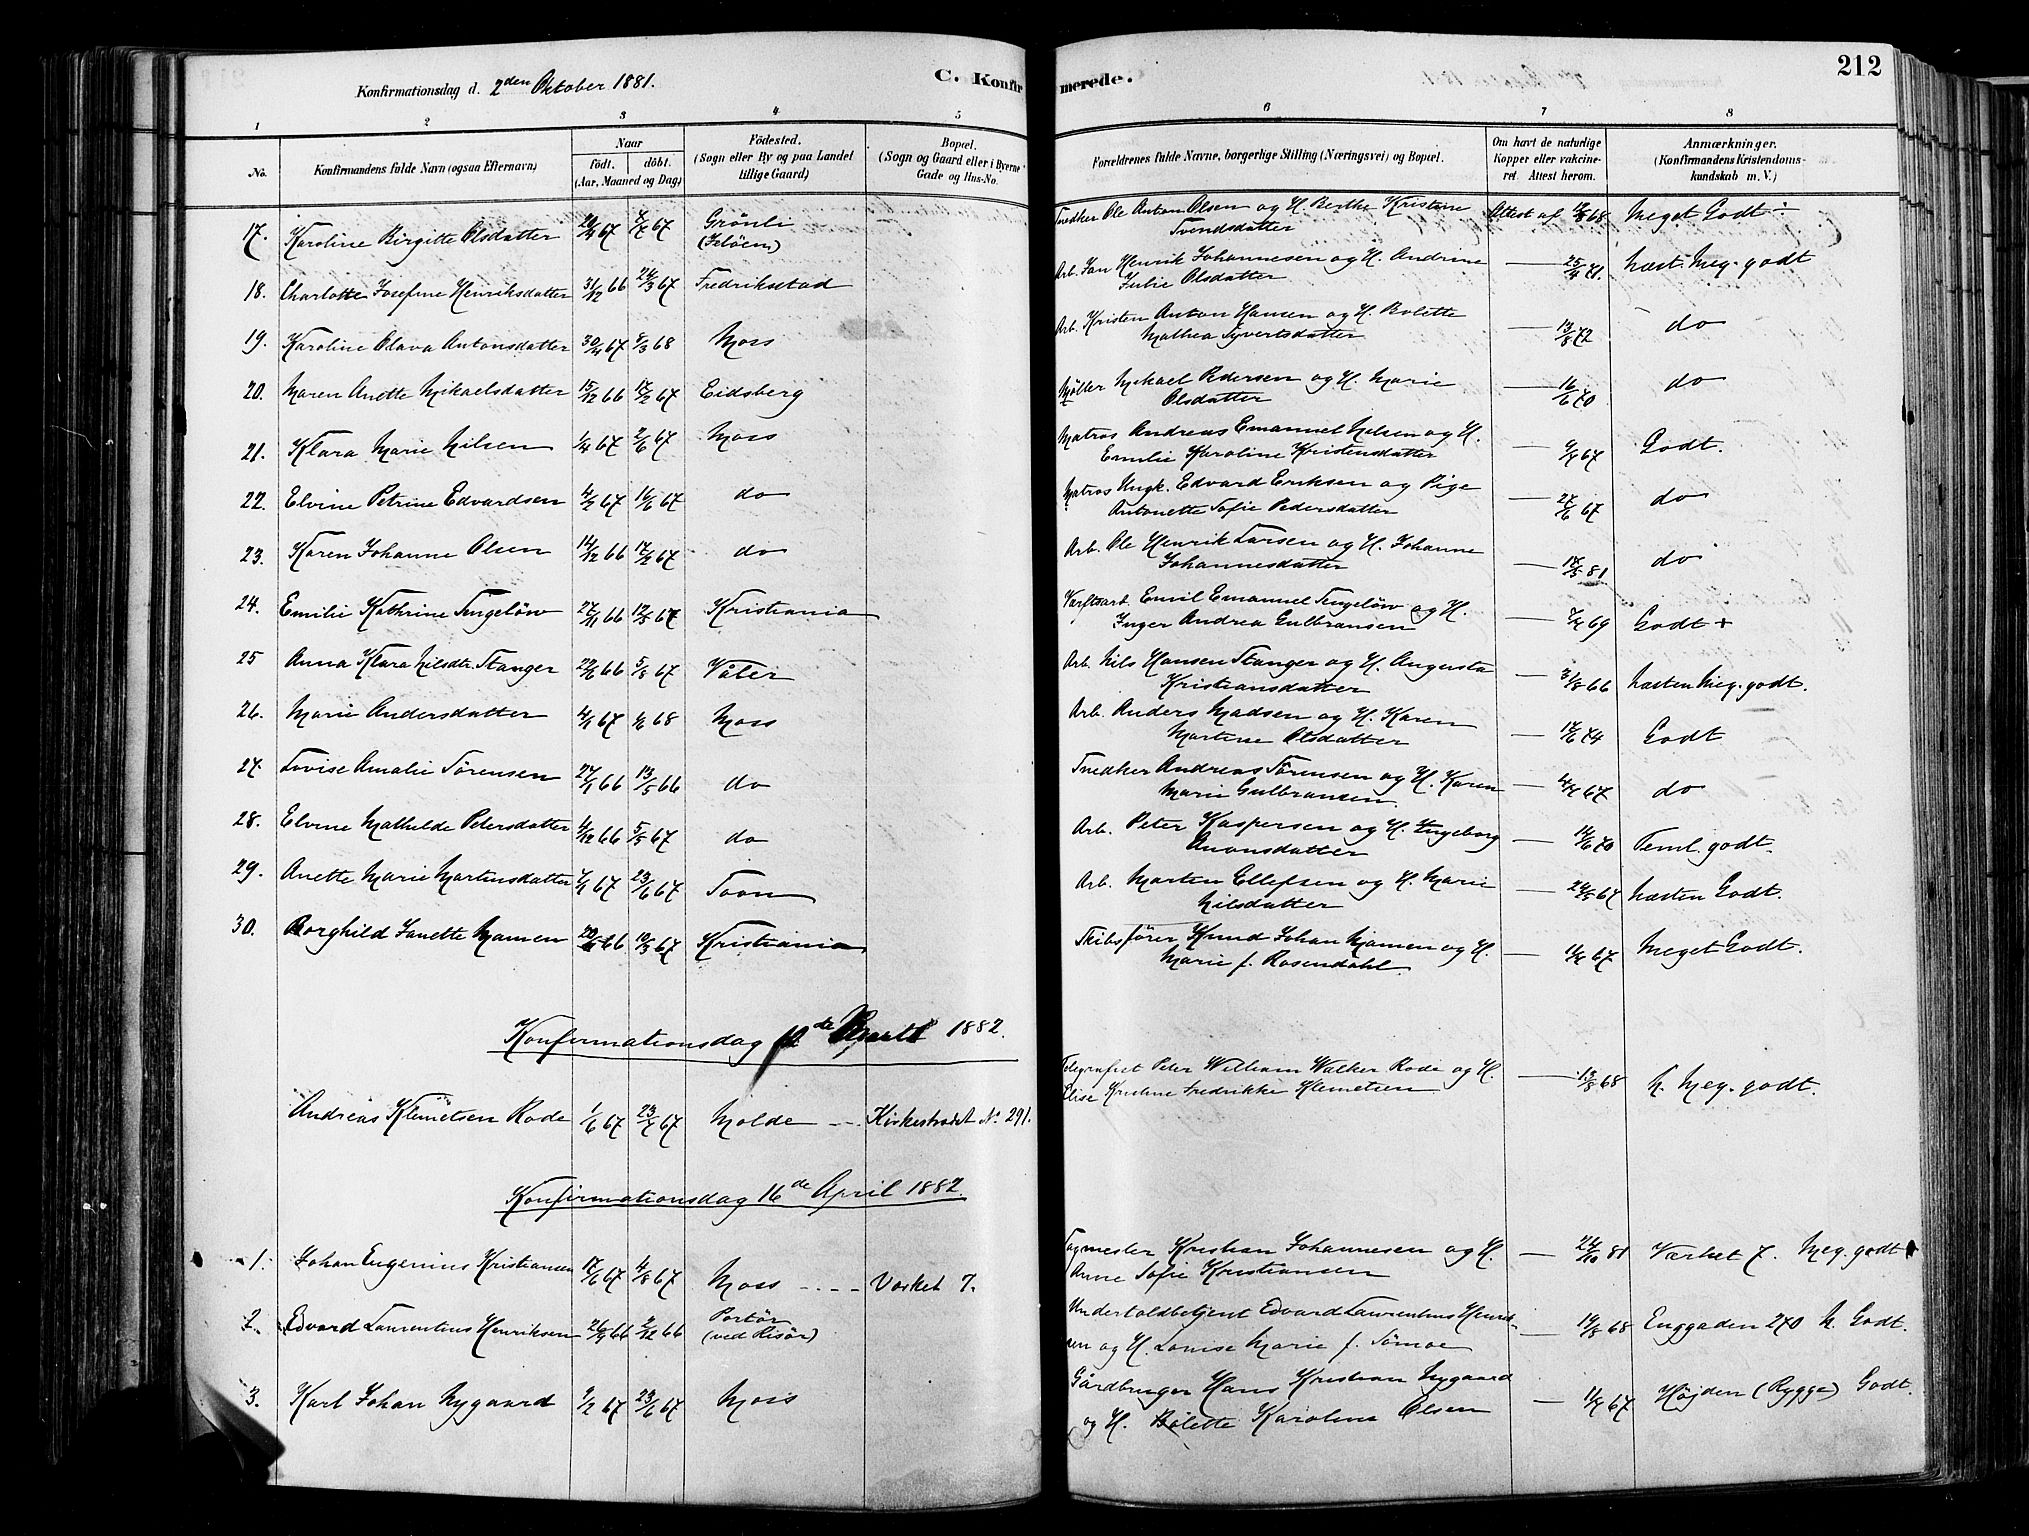 Konfirmationsdag d. 2den Oktober 1881.
C. Konfirmerede.
212
1 2 3 4 5 6 7 8
No.
Konfirmandens fulde Navn (ogsaa Efternavn)
Naar
födt. döbt.
(Aar, Maaned og Dag)
Födested.
(Sogn eller By og paa Landet
tillige Gaard)
Bopæl.
(Sogn og Gaard eller i Byerne
Gade og Hus-No.
Forældrenes fulde Navne, borgerlige Stilling (Næringsvei) og Bopæl.
Om havt de naturlige
Kopper eller vakcine-
ret. Attest herom.
Anmærkninger.
(Konfirmandens Kristendoms-
kundskab m. V.)
17. Karoline Birgitte Olsdatter 67 67 Grönli
(Jelöen)
Snedker Ole Anton Olsen og H. Berthe Kristine
Svendsdatter
Attest af 68 Meget Godt
18. Charlotte Josefine Henriksdatter 31/12 66 24/3 67 Fredrikstad
Arb. Jan Henrik Johannesen og H. Andrine
Julie Olsdatter
— 25/4 71. Næst. Meg. godt
19. Karoline Olava Antonsdatter 30/4 67 /3 68 Moss
Arb. Kristen Anton Hansen og H. Bolette
Mathea Syvertsdatter
— 13/8 72 do
20. Maren Anette Mikaelsdatter 15/12 66 17/2 67 Eidsberg
Møller Mikael Pedersen og H. Marie
Olsdatter
— 16/6 70 do
21. Klara Marie Nilsen 1/4 67 2/6 67 Moss
Matros Andreas Emanuel Nilsen og H.
Emilie Karoline Kristensdatter
— 67 Godt.
22. Elvine Petrine Edvardsen 4/2 67 16/6 67 do
Matros Ungk. Edvard Eriksen og Pige
Antonette Sofie Pedersdatter
— 27/6 67 do
23. Karen Johanne Olsen 14/12 66 17/2 67 do
Arb. Ole Henrik Larsen og H. Johanne
Johannesdatter
— 81 do
24. Emilie Kathrine Tengelöw 27/11 66 12/5 67 Kristiania
Værftsarb. Emil Emanuel Tengelöw og H.
Inger Andrea Gulbransen
— 69 Godt +
25 Anna Klara Nilsdtr. Stanger 66 5/8 67 Våler
Arb. Nils Hansen Stanger og H. Augusta
Kristiansdatter
— 66 Næsten Meg. godt.
26. Marie Andersdatter 4/1 67 68 Moss
Arb. Anders Madsen og H. Karen
Martine Olsdatter
— 17/6 74 Godt
27. Lovise Amalie Sörensen 27/1 66 13/5 66 do
Snedker Andreas Sörensen og H. Karen
Marie Gulbransen
— 67 do
28. Elvine Mathilde Petersdatter 4/12 66 5/5 67 do
Arb. Peter Kaspersen og H. Ingeborg
Aronsdatter
— 14/6 70 Teml. godt.
29. Anette Marie Martinsdatter 67 23/6 67 Soon
Arb. Marten Ellefsen og H. Marie
Nilsdatter
— 67 Næsten Godt.
30. Borghild Janette Mamen 66 67 Kristiania
Skibsförer Knud Johan Mamen og H.
Marie f. Rosendahl
— 67 Meget Godt.
Konfirmationsdag de 1882.
Andreas Klemetsen Rode 1/6 67 23/ 67 Molde Kirkestrædet No. 291.
Telegrafist Peter William Walker Rode og H.
Elise Kristine Fredrikke Klemetsen
— 13/8 68 N. Meg. godt.
Konfirmationsdag 16de April 1882.
1. Johan Eugenius Kristiansen 17/6 67 4/8 67 Moss Værket 7.
Tagmester Kristian Johannesen og H.
Anne Sofie Kristiansen
— 24/10 81 Værket 7. Meg. godt
2. Edvard Laurentius Henriksen 26/9 66 2/12 66 Portör
(ved Risör)
Undertoldbetjent Edvard Laurentius Henrik-
sen og H. Louise Marie f. Sömoe
— 19/8 68 Enggaden 270 N. Godt.
3. Karl Johan Nygaard /2 67 23/6 67 Moss
Gårdbruger Hans Kristian Nygaard
og H. Bolette Karoline Olsen
— 67 Højden (Rygge) Godt.